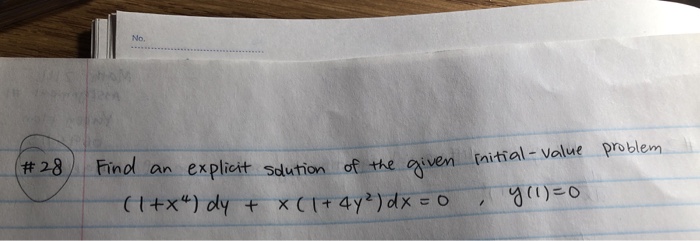 No.
#28 Find an explicit solution of the given initial-value problem
(1+x⁴) dy + x(1+4y²) dx = 0 , y(1)=0